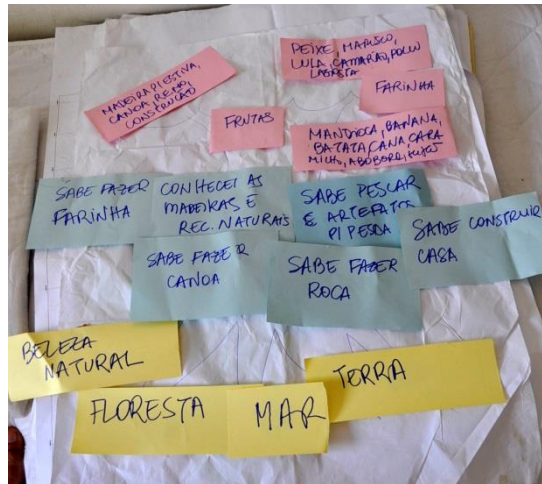 MADEIRA P/ ESTIVA,
CANOA, REMO,
CONSTRUÇÃO
PEIXE, MARISCO,
LULA, CAMARÃO, POLVO
LAGOSTA
FARINHA
FRUTAS
MANDIOCA, BANANA,
BATATA, CANA, CARA
MILHO, ABOBORA, FEIJÃO
SABE FAZER
FARINHA
CONHECER AS
MADEIRAS E
REC. NATURAIS
SABE PESCAR
E ARTEFATOS
P/ PESCA
SABE CONSTRUIR
CASA
SABE FAZER
CANOA
SABE FAZER
ROCA
BELEZA
NATURAL
TERRA
FLORESTA
MAR